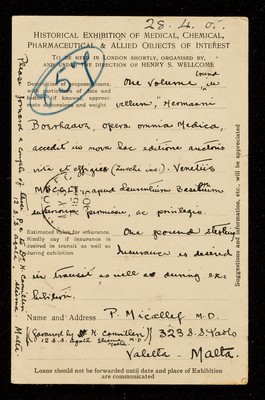 28.4.05.
HISTORICAL EXHIBITION OF MEDICAL, CHEMICAL,
PHARMACEUTICAL & ALLIED OBJECTS OF INTEREST
TO BE HELD IN LONDON SHORTLY, ORGANISED BY,
AND UNDER THE DIRECTION OF HENRY S. WELLCOME
959
Description of proposed loans,
with particulars of date and
history if known, approximate
dimensions and weight
One volume bound in
vellum, "Hermanni
Boerhaave, opera omnia Medica,
accedit in nova hac editione auctoris
vita et effigies (Zucchi inc.). Venetiis
MDCCLI. apud Laurentium Basilium
superiorum permissu, ac privilegio.
Estimated value for insurance.
Kindly say if insurance is
desired in transit as well as
during exhibition
One pound sterling
Insurance is desired
in transit as well as during ex-
hibition.
Name and Address P. Micallef M.D.
(favoured by H. Comilleri M.D.) 323 S. S. Paolo
12 S.S. Agatha Sliema Malta. Valetta - Malta.
Loans should not be forwarded until date and place of Exhibition
are communicated
Suggestions and information, etc., will be appreciated
Please forward a couple of these P.C. to Dr H. Comilleri
12 S.S. Agatha Sliema. Malta.